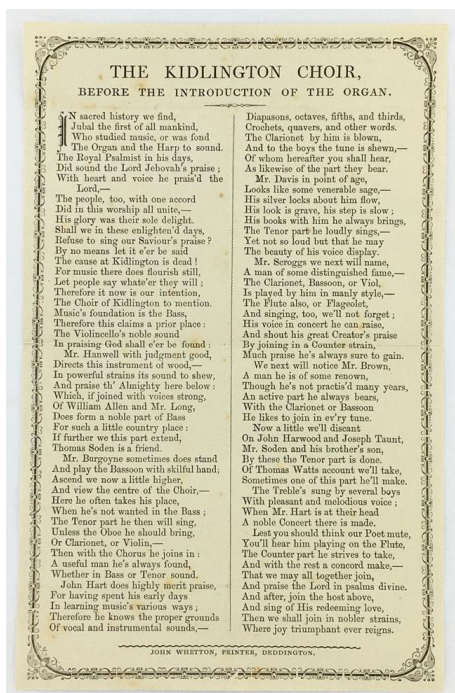 THE KIDLINGTON CHOIR,
BEFORE THE INTRODUCTION OF THE ORGAN.
IN sacred history we find,
Jubal the first of all mankind,
Who studied music, or was fond
The Organ and the Harp to sound.
The Royal Psalmist in his days,
Did sound the Lord Jehovah's praise;
With heart and voice he prais'd the
Lord,—
The people, too, with one accord
Did in this worship all unite,—
His glory was their sole delight.
Shall we in these enlighten'd days,
Refuse to sing our Saviour's praise?
By no means let it e'er be said
The cause at Kidlington is dead!
For music there does flourish still,
Let people say whate'er they will;
Therefore it now is our intention,
The Choir of Kidlington to mention.
Music's foundation is the Bass,
Therefore this claims a prior place:
The Violincello's noble sound
In praising God shall e'er be found:
Mr. Hanwell with judgment good,
Directs this instrument of wood,—
In powerful strains its sound to shew,
And praise th' Almighty here below:
Which, if joined with voices strong,
Of William Allen and Mr. Long,
Does form a noble part of Bass
For such a little country place:
If further we this part extend,
Thomas Soden is a friend.
Mr. Burgoyne sometimes does stand
And play the Bassoon with skilful hand;
Ascend we now a little higher,
And view the centre of the Choir,—
Here he often takes his place,
When he's not wanted in the Bass;
The Tenor part he then will sing,
Unless the Oboe he should bring,
Or Clarionet, or Violin,—
Then with the Chorus he joins in:
A useful man he's always found,
Whether in Bass or Tenor sound.
John Hart does highly merit praise,
For having spent his early days
In learning music's various ways;
Therefore he knows the proper grounds
Of vocal and instrumental sounds,—
Diapasons, octaves, fifths, and thirds,
Crochets, quavers, and other words.
The Clarionet by him is blown,
And to the boys the tune is shewn,—
Of whom hereafter you shall hear,
As likewise of the part they bear.
Mr. Davis in point of age,
Looks like some venerable sage,—
His silver locks about him flow,
His look is grave, his step is slow;
His books with him he always brings,
The Tenor part he loudly sings,—
Yet not so loud but that he may
The beauty of his voice display.
Mr. Scroggs we next will name,
A man of some distinguished fame,—
The Clarinet, Bassoon, or Viol,
Is played by him in manly style,—
The Flute also, or Flageolet,
And singing, too, we'll not forget;
His voice in concert he can raise,
And shout his great Creator's praise
By joining in a Counter strain,
Much praise he's always sure to gain.
We next will notice Mr. Brown,
A man he is of some renown,
Though he's not practis'd many years,
An active part he always bears,
With the Clarionet or Bassoon
He likes to join in ev'ry tune.
Now a little we'll discant
On John Harwood and Joseph Taunt,
Mr. Soden and his brother's son,
By these the Tenor part is done.
Of Thomas Watts account we'll take,
Sometimes one of this part he'll make.
The Treble's sung by several boys
With pleasant and melodious voice;
When Mr. Hart is at their head
A noble Concert there is made.
Lest you should think our Poet mute,
You'll hear him playing on the Flute,
The Counter part he strives to take,
And with the rest a concord make,—
That we may all together join,
And praise the Lord in psalms divine.
And after, join the host above,
And sing of His redeeming love,
Then we shall join in nobler strains,
Where joy triumphant ever reigns.
JOHN WHETTON, PRINTER, DEDDINGTON.